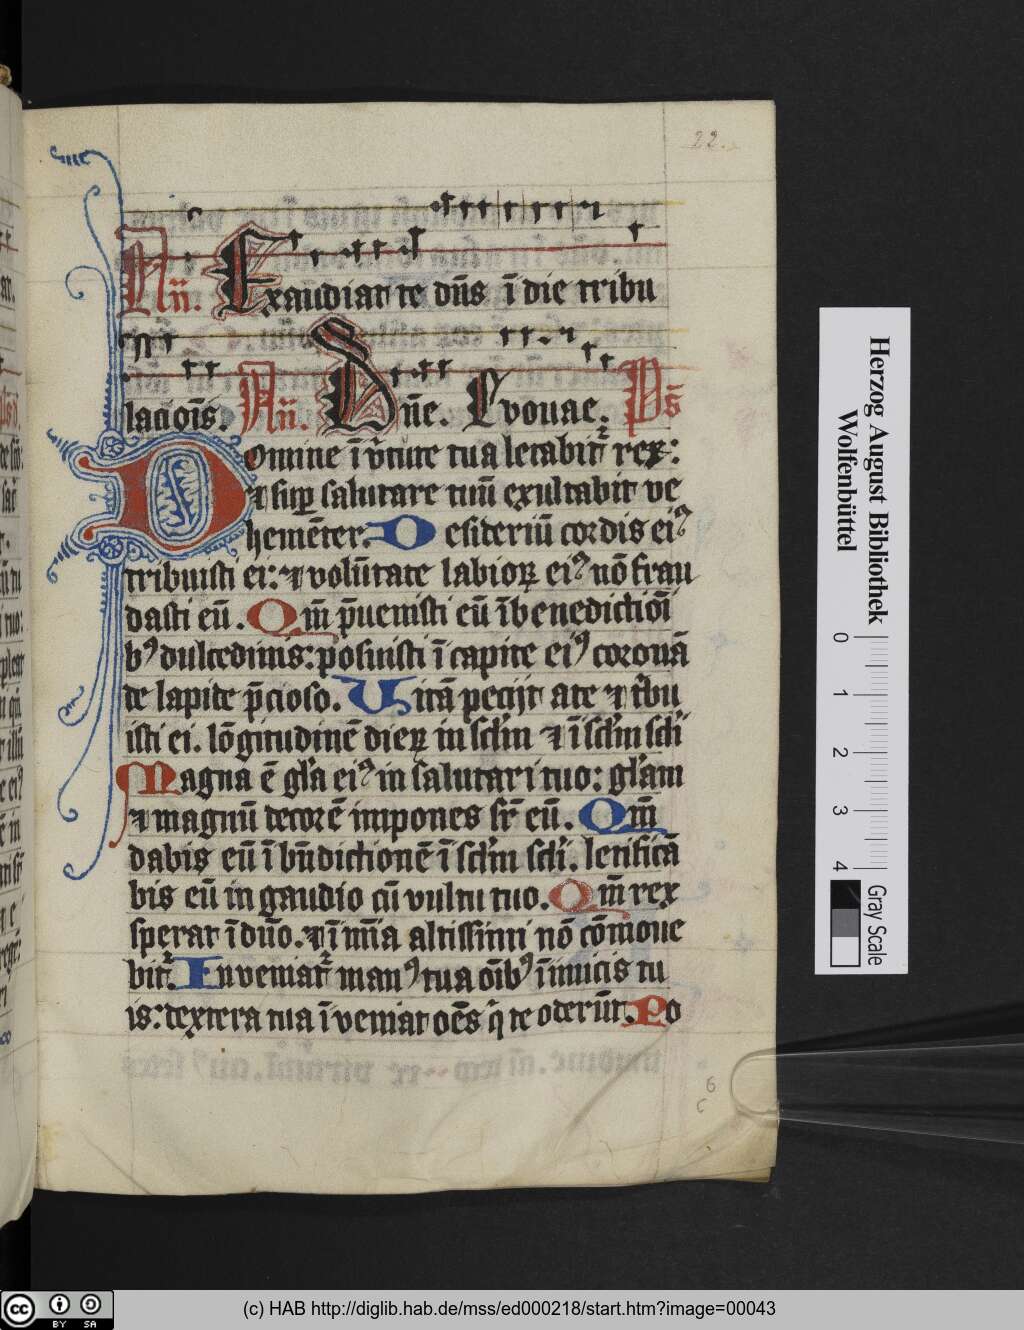 22.
An̄. Exaudiat te dn̄s ī die tribu
lacīois. An̄. Dn̄e. Evovae. Ps̄
Domine ī v̓tute tua letabit᷑ rex:
⁊ sup̱ salutare tuū exultabit ve
hemēter. Desideriū cordis eiꝰ
tribuisti ei: ⁊ volūtate labioꝝ eiꝰ nō frau
dasti eū. Qm̄ p̄uenisti eū ī benedictiōi
bꝰ dulcedinis: posuisti ī capite eiꝰ coronā
de lapide p̄cioso. Vitā petijt a te ⁊ t̓bu
isti ei. lōgitudinē dieꝝ in scl̓m ⁊ ī scl̓m scl̓i
Magna ē gl̓a eiꝰ in salutari tuo: gl̓am
⁊ magnū decorē impones sr̄ eū. Qm̄
dabis eū ī bn̄dictionē ī scl̓m scl̓i. letificā
bis eū in gaudio cū vultu tuo. Qm̄ rex
sperat ī dn̄o. ⁊ ī mīa altissimi nō cōmoue
bit᷑. Inveniat᷑ manꝰ tua oībꝰ īimicis tu
is: dextera tua īveniat oēs q̓ te oderūt. Po
6
c
Herzog August Bibliothek
Wolfenbüttel
0 1 2 3 4
Gray Scale
cc BY SA
(c) HAB http://diglib.hab.de/mss/ed000218/start.htm?image=00043